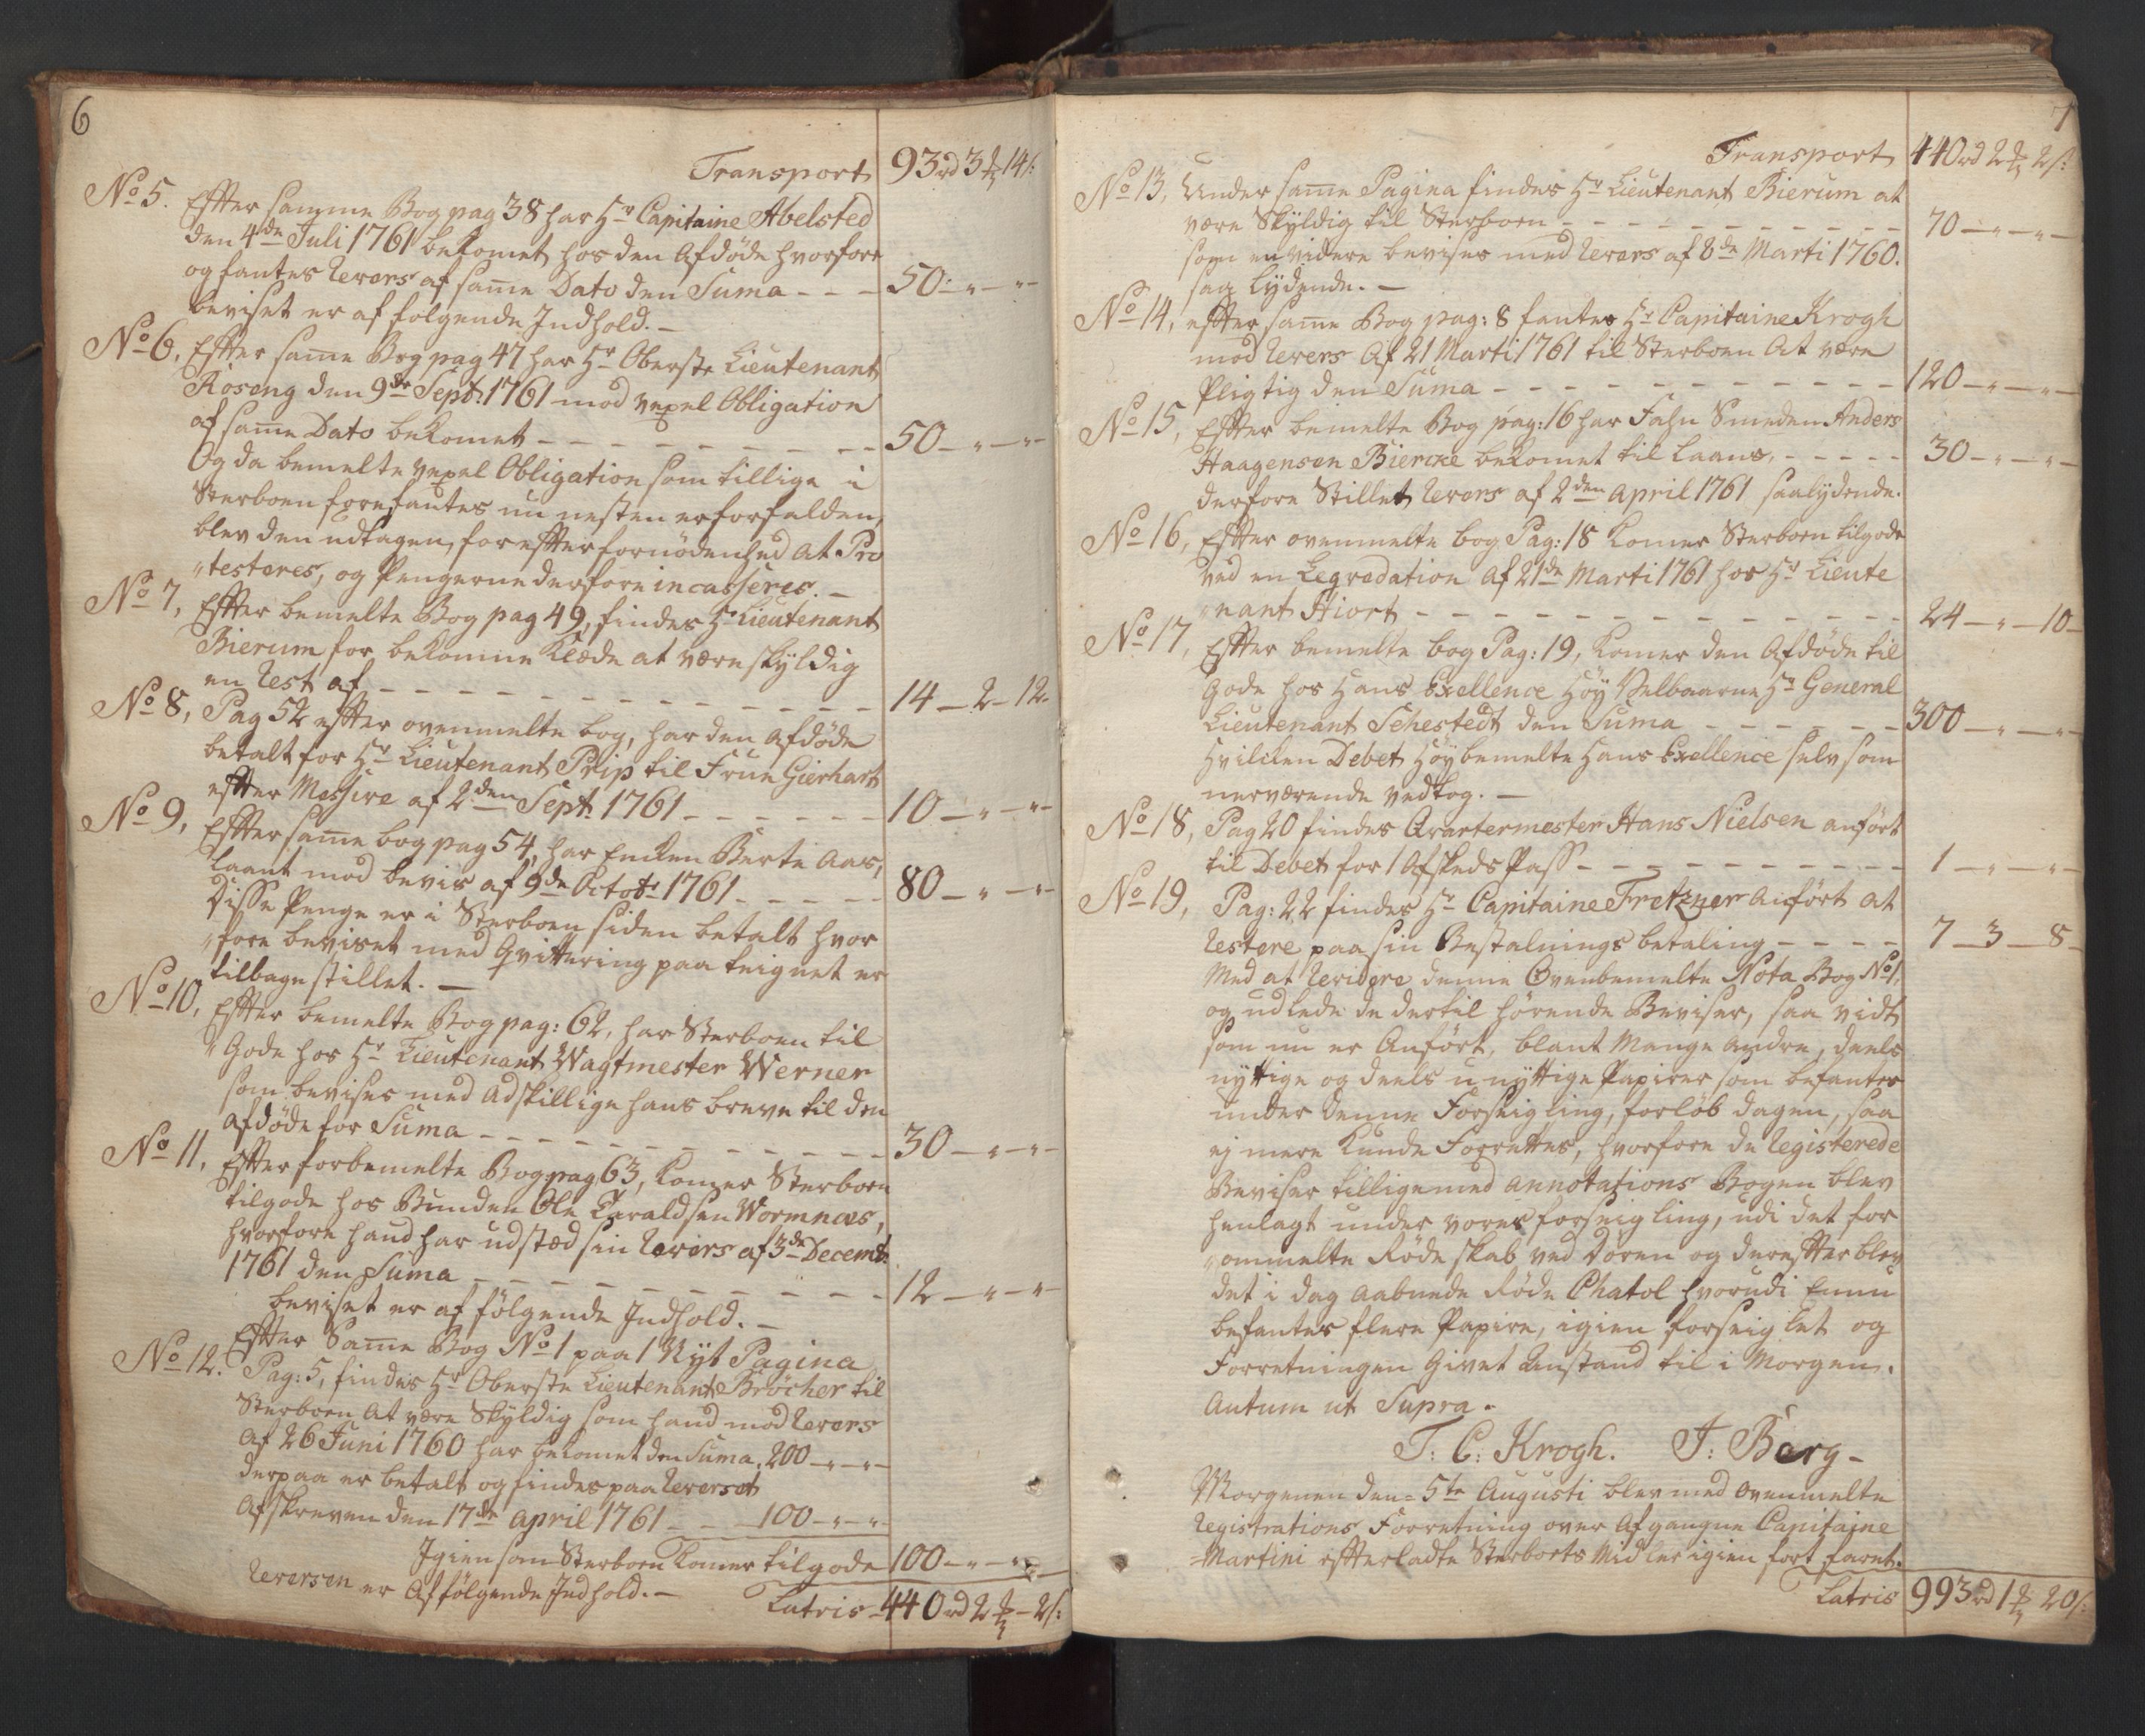 6
Transport 93 rd 3 ℔ 14 s:
No 5. Efter samme Bog pag 38 har Hr Capitaine Abelsted
den 4de Juli 1761 bekomet hos den Afdöde hvorfore
og fantes Revers af same Dato den Suma - - - 50 - " - "
beviset er af folgende Indhold. -
No 6, Efter same Bog pag 47 har Hr Oberste Lieutenant
Roseng den 9de Sept: 1761 mod vexel Obligation
af same Dato bekomet - - - 50 - " - "
Og da bemelte vexel Obligation som tillige i
Sterboen forefantes nu nesten er forfalden,
blev den udtagen, for efter fornödenhed at Pro
"testeres, og Pengerne derfore incasseres. -
No 7, Efter bemelte Bog pag 49, findes Hr Lieutenant
Bierum for bekomne Klæde at være skÿldig
en Rest af - - - 14 - 2 - 12
No 8, Pag 52 efter ovenmelte bog, har den afdöde
betalt for Hr Lieutenant Prip til Frue Gierhart
efter Messive af 2den Sept: 1761 - - - 10 - " - "
No 9, Efter same bog pag 54, har Enken Berte Aas,
laant mod bevis af 9de Octobr 1761 - - - 80 - " - "
Disse Penge er i Sterboen siden betalt hvor
"fore beviset med Qvittering paa teignet er
tilbage stillet. -
No 10, Efter bemelte Bog pag: 62, har Sterboen til
"Gode hos Hr Lieutenant Wagtmester Werner
som bevises med Adskillige hans breve til den
Afdöde for Suma - - - 30 - " - "
No 11, Efter forbemelte Bog pag 63, Komer Sterboen
tilgode hos Bunden Ole Haraldsen Wormnæs,
hvorfore hand har udstæd sin Revers af 3de Decemb:
1761 den Suma - - - 12 - " - "
beviset er af fölgende Indhold. -
Efter Same Bog No 1 paa 1 Nÿt Pagina
No 12. Pag: 5, findes Hr Oberste Lieutenant Bröcher til
Sterboen at være Skÿldig som hand mod Revers
Af 26 Juni 1760 har bekomet den Suma, 200 - " - "
derpaa er betalt og findes paa Reverset
Afskreven den 17de april 1761 - - 100 - " - "
Igien som Sterboen Komer tilgode 100 - " - "
Reversen er Af fölgende Indhold. -
Latris 440 rd 2 ℔ - 2 s:
7
Transport 440 rd 2 ℔ 2 s:
No 13, Under same Pagina findes Hr Lieutenant Bierum at
være Skÿldig til Sterboen - - - 70 - " - "
som en videre bevises med Revers af 8de Marti 1760.
saa lÿdende. -
No 14, efter same Bog pag: 8 fantes Hr Capitaine Krogh
mod Revers Af 21 Marti 1761 til Sterboen At være
Pligtig den Suma - - - 120 - " - "
No 15, Efter bemelte Bog pag: 16 har Fahn Smeden Anders
Haagensen Biercke bekomet til Laans, - - - 30 - " - "
derfore Stillet Revers af 2den april 1761 saalÿdende.
No 16, Efter ovenmelte bog Pag: 18 Komer Sterboen tilgode
ved en Legredation Af 21de Marti 1761 hos Hr Lieute
"nant Hiort - - - 24 - " - 10 -
No 17, Efter bemelte bog Pag: 19, Komer den Afdöde til
Gode hos Hans Exellence Höÿ Velbaarne Hr General
Lieutenant Sehestedt den Suma - - - 300 - " - "
Hvilcken Debet Höÿbemelte Hans Exellence selv som
nerværende vedtog. -
No 18, Pag 20 findes Qvartermester Hans Nielsen anfört
til Debet for 1 Afskeds Pass - - - 1 - " - "
No 19, Pag: 22 findes Hr Capitaine Fretzner anfört at
Restere paa sin Bestalnings betaling - - - 7 - 3 - 8 -
Med at Revidere denne Ovenbemelte Nota Bog No 1,
og udlede de dertil hörende Beviser, saa vidt
som nu er Anfört, blant Mange Andre, deels
nÿttige og deels unÿttige Papirer som befantes
under denne Forseigling, forlöb dagen, saa
ej mere Kunde Forrettes, hvorfore de Registerede
Beviser tilligemed Annotations Bogen blev
henlagt under vores forseigling, udi det for
"ommelte Röde skab ved Doren og derefter blev
det i dag aabnede Röde Chatol hvorudi Ennu
befantes flere Papire, igien forseiglet og
Forretningen Givet Anstand til i Morgen.
Autum ut Supra.
T: C: Krogh. J: Berg -
Morgenen den 5te Augusti blev med Ovenmelte
Registrations Forretning over Afgangne Capitaine
Martini efterladte Sterboets Midler igien fort faret.
Latris 993 rd 1 ℔ 20 s: